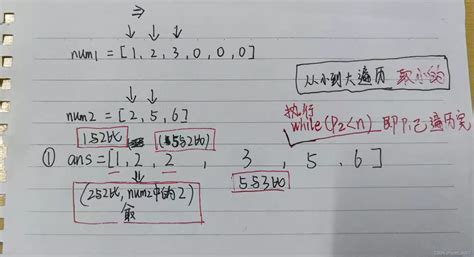 ⇒
↓ ↓ ↓
num1 = [1, 2, 3, 0, 0, 0]
从小到大遍历 取小的
↓ ↓
num2 = [2, 5, 6]
执行
while(P2<n) 即P1已遍历完
1与2比
5与2比
① ans=[1, 2, 2, 3, 5, 6]
5与3比
(2与2比, num2中的2)